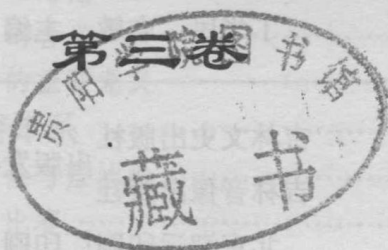 第三卷
贵阳学院图书馆
藏书